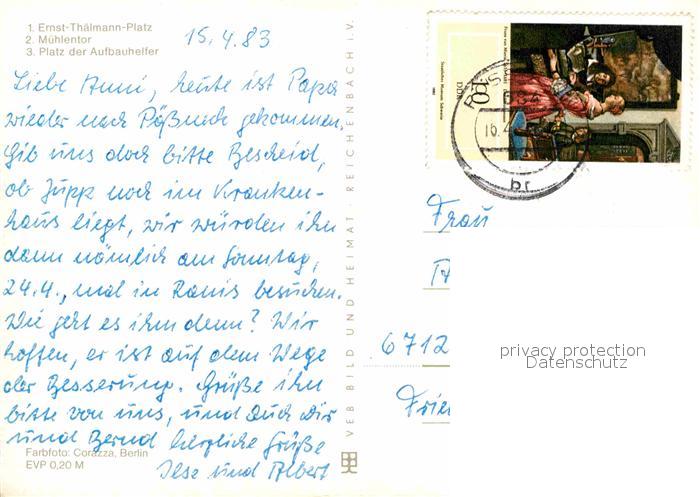 1. Ernst-Thälmann-Platz
2. Mühlentor
3. Platz der Aufbauhelfer
15.4.83
Liebe Anni, heute ist Papa
wieder nach Pößneck gekommen.
Gib uns doch bitte Bescheid,
ob Jupp noch im Kranken-
haus liegt, wir würden ihn
dann nämlich am Sonntag,
24.4., mal in Ranis besuchen.
Wie geht es ihm denn? Wir
hoffen, er ist auf dem Wege
der Besserung. Grüße ihn
bitte von uns, und auch Dir
und Bernd herzliche Grüße
Ilse und Albert
Farbfoto: Corazza, Berlin
EVP 0,20 M
VEB BILD UND HEIMAT REICHENBACH i.V.
DDR
10
Staatliches Museum Schwerin
16.4
br
Frau
6712
Frie
privacy protection
Datenschutz